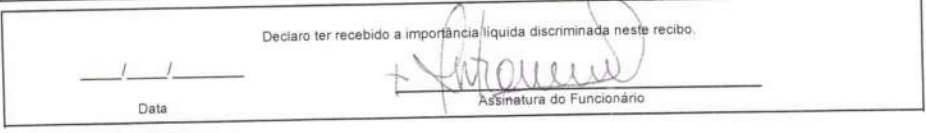 Declaro ter recebido a importância líquida discriminada neste recibo.
___/___/______
Data
Assinatura do Funcionário